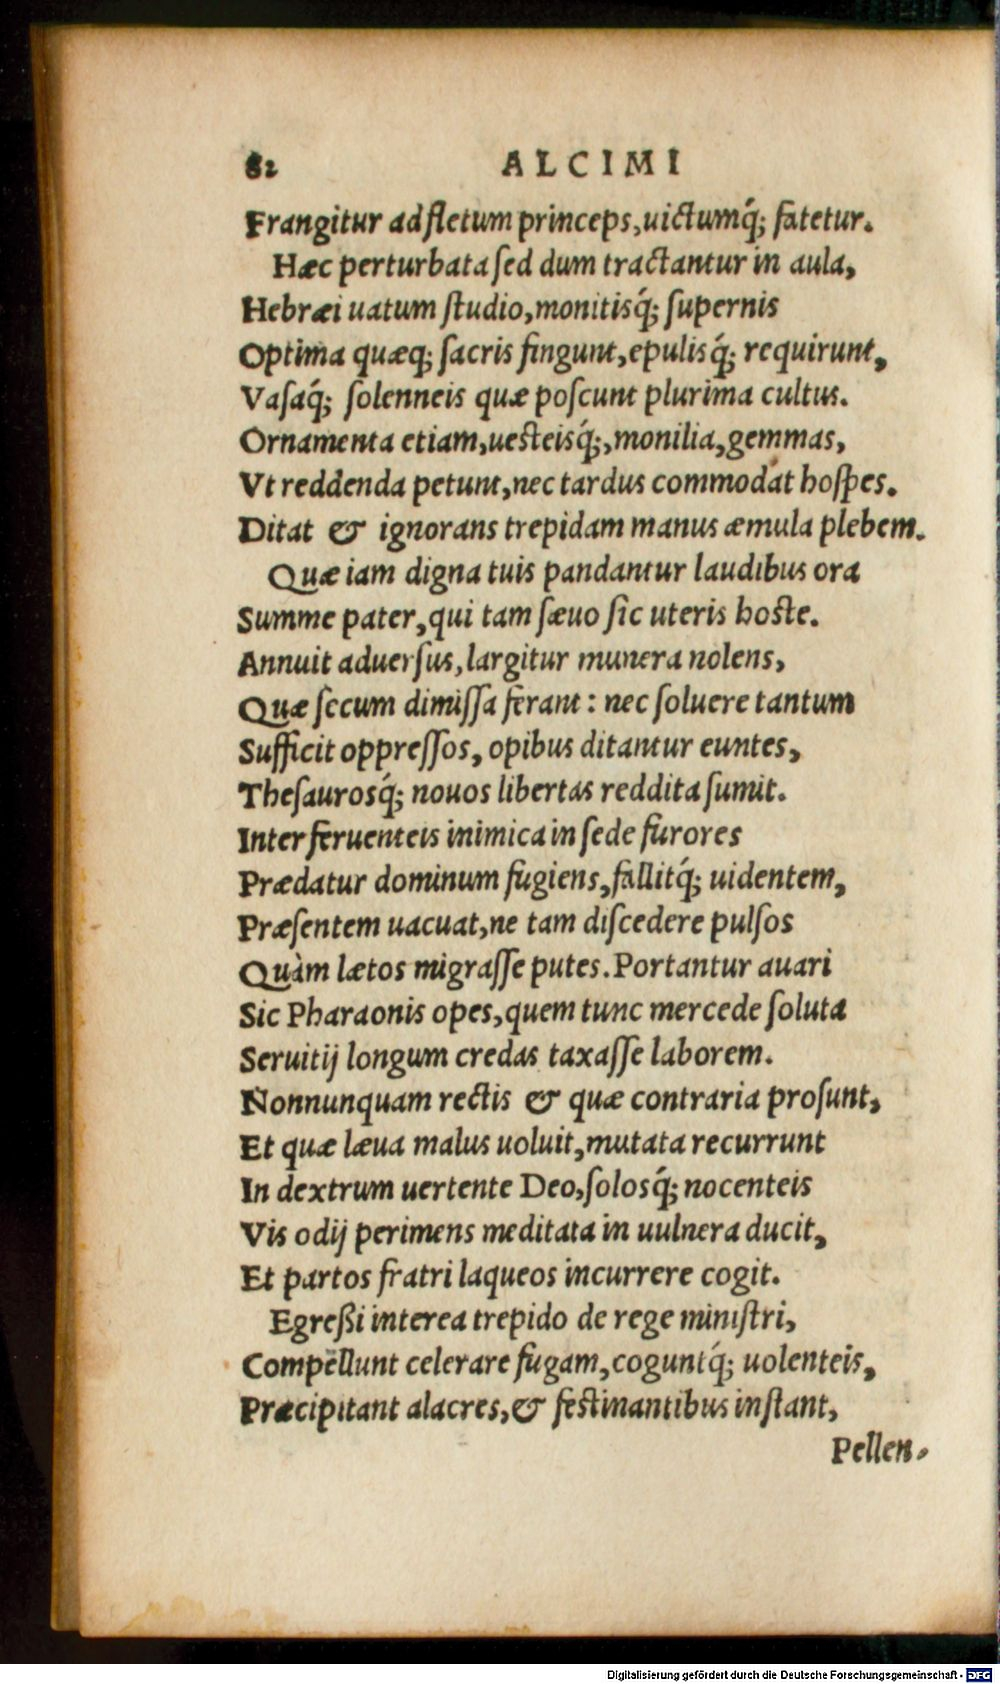 82 ALCIMI
Frangitur ad fletum princeps, uictumq́; fatetur.
Hæc perturbata sed dum tractantur in aula,
Hebræi uatum studio, monitisq́; supernis
Optima quæq; sacris fingunt, epulisq́; requirunt,
Vasaq́; solenneis quæ poscunt plurima cultus.
Ornamenta etiam, uesteisq́;, monilia, gemmas,
Vt reddenda petunt, nec tardus commodat hospes.
Ditat & ignorans trepidam manus æmula plebem.
Quæ iam digna tuis pandantur laudibus ora
Summe pater, qui tam sæuo sic uteris hoste.
Annuit aduersus, largitur munera nolens,
Quæ secum dimissa ferant: nec soluere tantum
Sufficit oppressos, opibus ditantur euntes,
Thesaurosq́; nouos libertas reddita sumit.
Inter feruenteis inimica in sede furores
Prædatur dominum fugiens, fallitq́; uidentem,
Præsentem uacuat, ne tam discedere pulsos
Quàm lætos migrasse putes. Portantur auari
Sic Pharaonis opes, quem tunc mercede soluta
Seruitij longum credas taxasse laborem.
Nonnunquam rectis & quæ contraria prosunt,
Et quæ læua malus uoluit, mutata recurrunt
In dextrum uertente Deo, solosq́; nocenteis
Vis odij perimens meditata in uulnera ducit,
Et partos fratri laqueos incurrere cogit.
Egreßi interea trepido de rege ministri,
Compellunt celerare fugam, coguntq́; uolenteis,
Præcipitant alacres, & festinantibus instant,
Pellen-
Digitalisierung gefördert durch die Deutsche Forschungsgemeinschaft - DFG